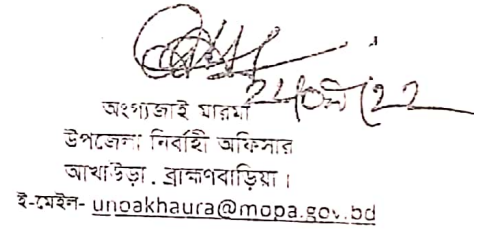 অংগ্যজাই মারমা
উপজেলা নির্বাহী অফিসার
আখাউড়া, ব্রাহ্মণবাড়িয়া।
ই-মেইল- unoakhaura@mopa.gov.bd